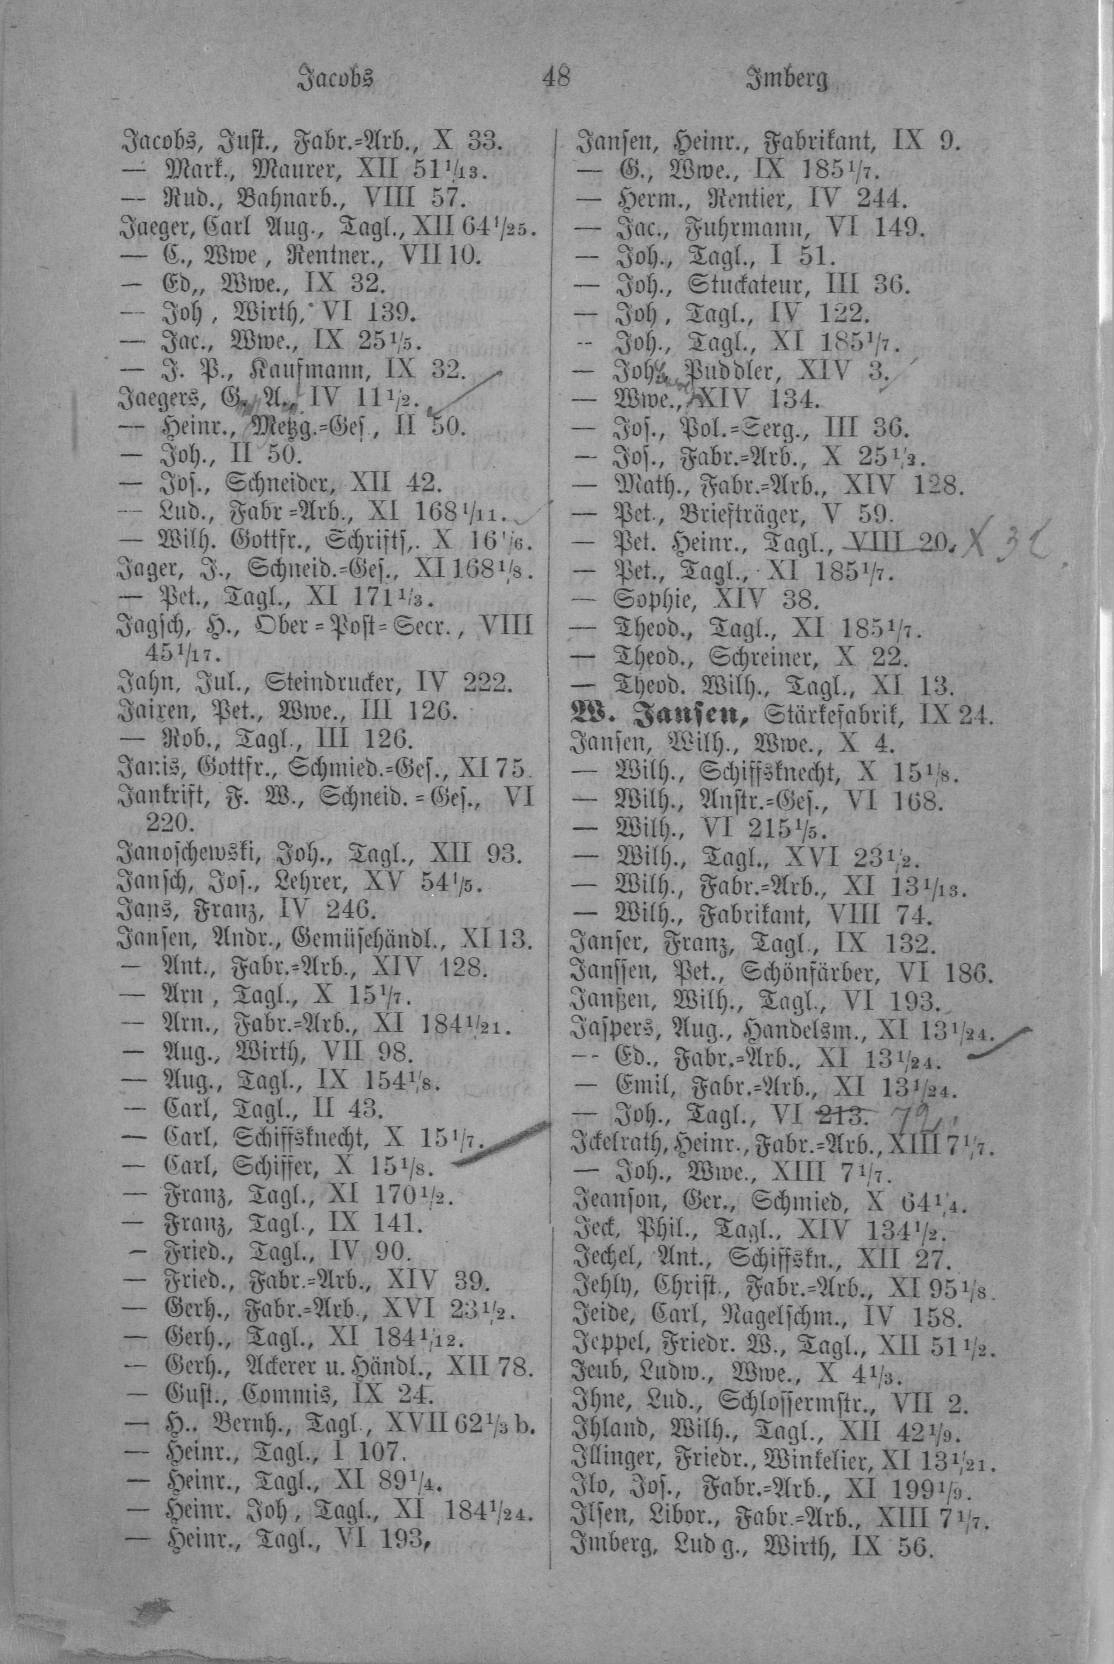 Jacobs 48 Imberg
Jacobs, Just., Fabr.=Arb., X 33.
— Mark., Maurer, XII 51 1/13.
— Rud., Bahnarb., VIII 57.
Jaeger, Carl Aug., Tagl., XII 64 1/25.
— C., Wwe , Rentner., VII 10.
— Ed,, Wwe., IX 32.
— Joh , Wirth, VI 139.
— Jac., Wwe., IX 25 1/5.
— J. P., Kaufmann, IX 32.
Jaegers, G. A., IV 11 1/2.
— Heinr., Metzg.=Ges., II 50.
— Joh., II 50.
— Jos., Schneider, XII 42.
— Lud., Fabr=Arb., XI 168 1/11.
— Wilh. Gottfr., Schrifts,. X 16 1/6.
Jager, J., Schneid.=Ges., XI 168 1/8.
— Pet., Tagl., XI 171 1/3.
Jagsch, H., Ober=Post=Secr., VIII
45 1/17.
Jahn, Jul., Steindrucker, IV 222.
Jaixen, Pet., Wwe., III 126.
— Rob., Tagl., III 126.
Janis, Gottfr., Schmied.=Ges., XI 75.
Jankrift, F. W., Schneid.=Ges., VI
220.
Janoschewski, Joh., Tagl., XII 93.
Jansch, Jos., Lehrer, XV 54 1/5.
Jans, Franz, IV 246.
Jansen, Andr., Gemüsehändl., XI 13.
— Ant., Fabr.=Arb., XIV 128.
— Arn , Tagl., X 15 1/7.
— Arn., Fabr.=Arb., XI 184 1/21.
— Aug., Wirth, VII 98.
— Aug., Tagl., IX 154 1/8.
— Carl, Tagl., II 43.
— Carl, Schiffsknecht, X 15 1/7.
— Carl, Schiffer, X 15 1/8.
— Franz, Tagl., XI 170 1/2.
— Franz, Tagl., IX 141.
— Fried., Tagl., IV 90.
— Fried., Fabr.=Arb., XIV 39.
— Gerh., Fabr.=Arb., XVI 23 1/2.
— Gerh., Tagl., XI 184 1/12.
— Gerh., Ackerer u. Händl., XII 78.
— Gust., Commis, IX 24.
— H.. Bernh., Tagl., XVII 62 1/3 b.
— Heinr., Tagl., I 107.
— Heinr., Tagl., XI 89 1/4.
— Heinr. Joh., Tagl., XI 184 1/24.
— Heinr., Tagl., VI 193,
Jansen, Heinr., Fabrikant, IX 9.
— G., Wwe., IX 185 1/7.
— Herm., Rentier, IV 244.
— Jac., Fuhrmann, VI 149.
— Joh., Tagl., I 51.
— Joh., Stuckateur, III 36.
— Joh., Tagl., IV 122.
— Joh., Tagl., XI 185 1/7.
— Joh., Puddler, XIV 3.
— Wwe., XIV 134.
— Jos., Pol.=Serg., III 36.
— Jos., Fabr.=Arb., X 25 1/3.
— Math., Fabr.=Arb., XIV 128.
— Pet., Briefträger, V 59.
— Pet. Heinr., Tagl., VIII 20. X
— Pet., Tagl., XI 185 1/7.
— Sophie, XIV 38.
— Theod., Tagl., XI 185 1/7.
— Theod., Schreiner, X 22.
— Theod. Wilh., Tagl., XI 13.
W. Jansen, Stärkefabrik, IX 24.
Jansen, Wilh., Wwe., X 4.
— Wilh., Schiffsknecht, X 15 1/8.
— Wilh., Anstr.=Ges., VI 168.
— Wilh., VI 215 1/5.
— Wilh., Tagl., XVI 23 1/2.
— Wilh., Fabr.=Arb., XI 13 1/13.
— Wilh., Fabrikant, VIII 74.
Janser, Franz, Tagl., IX 132.
Janssen, Pet., Schönfärber, VI 186.
Janßen, Wilh., Tagl., VI 193.
Jaspers, Aug., Handelsm., XI 13 1/24.
— Ed., Fabr.=Arb., XI 13 1/24.
— Emil, Fabr.=Arb., XI 13 1/24.
— Joh., Tagl., VI 213. 72
Ickelrath, Heinr., Fabr.=Arb., XIII 7 1/7.
— Joh., Wwe., XIII 7 1/7.
Jeanson, Ger., Schmied, X 64 1/4.
Jeck, Phil., Tagl., XIV 134 1/2.
Jechel, Ant., Schiffskn., XII 27.
Jehly, Christ., Fabr.=Arb., XI 95 1/8.
Jeide, Carl, Nagelschm., IV 158.
Jeppel, Friedr. W., Tagl., XII 51 1/2.
Jeub, Ludw., Wwe., X 4 1/3.
Ihne, Lud., Schlossermstr., VII 2.
Ihland, Wilh., Tagl., XII 42 1/9.
Illinger, Friedr., Winkelier, XI 13 1/21.
Ilo, Jos., Fabr.=Arb., XI 199 1/9.
Ilsen, Libor., Fabr.=Arb., XIII 7 1/7.
Imberg, Ludg., Wirth, IX 56.